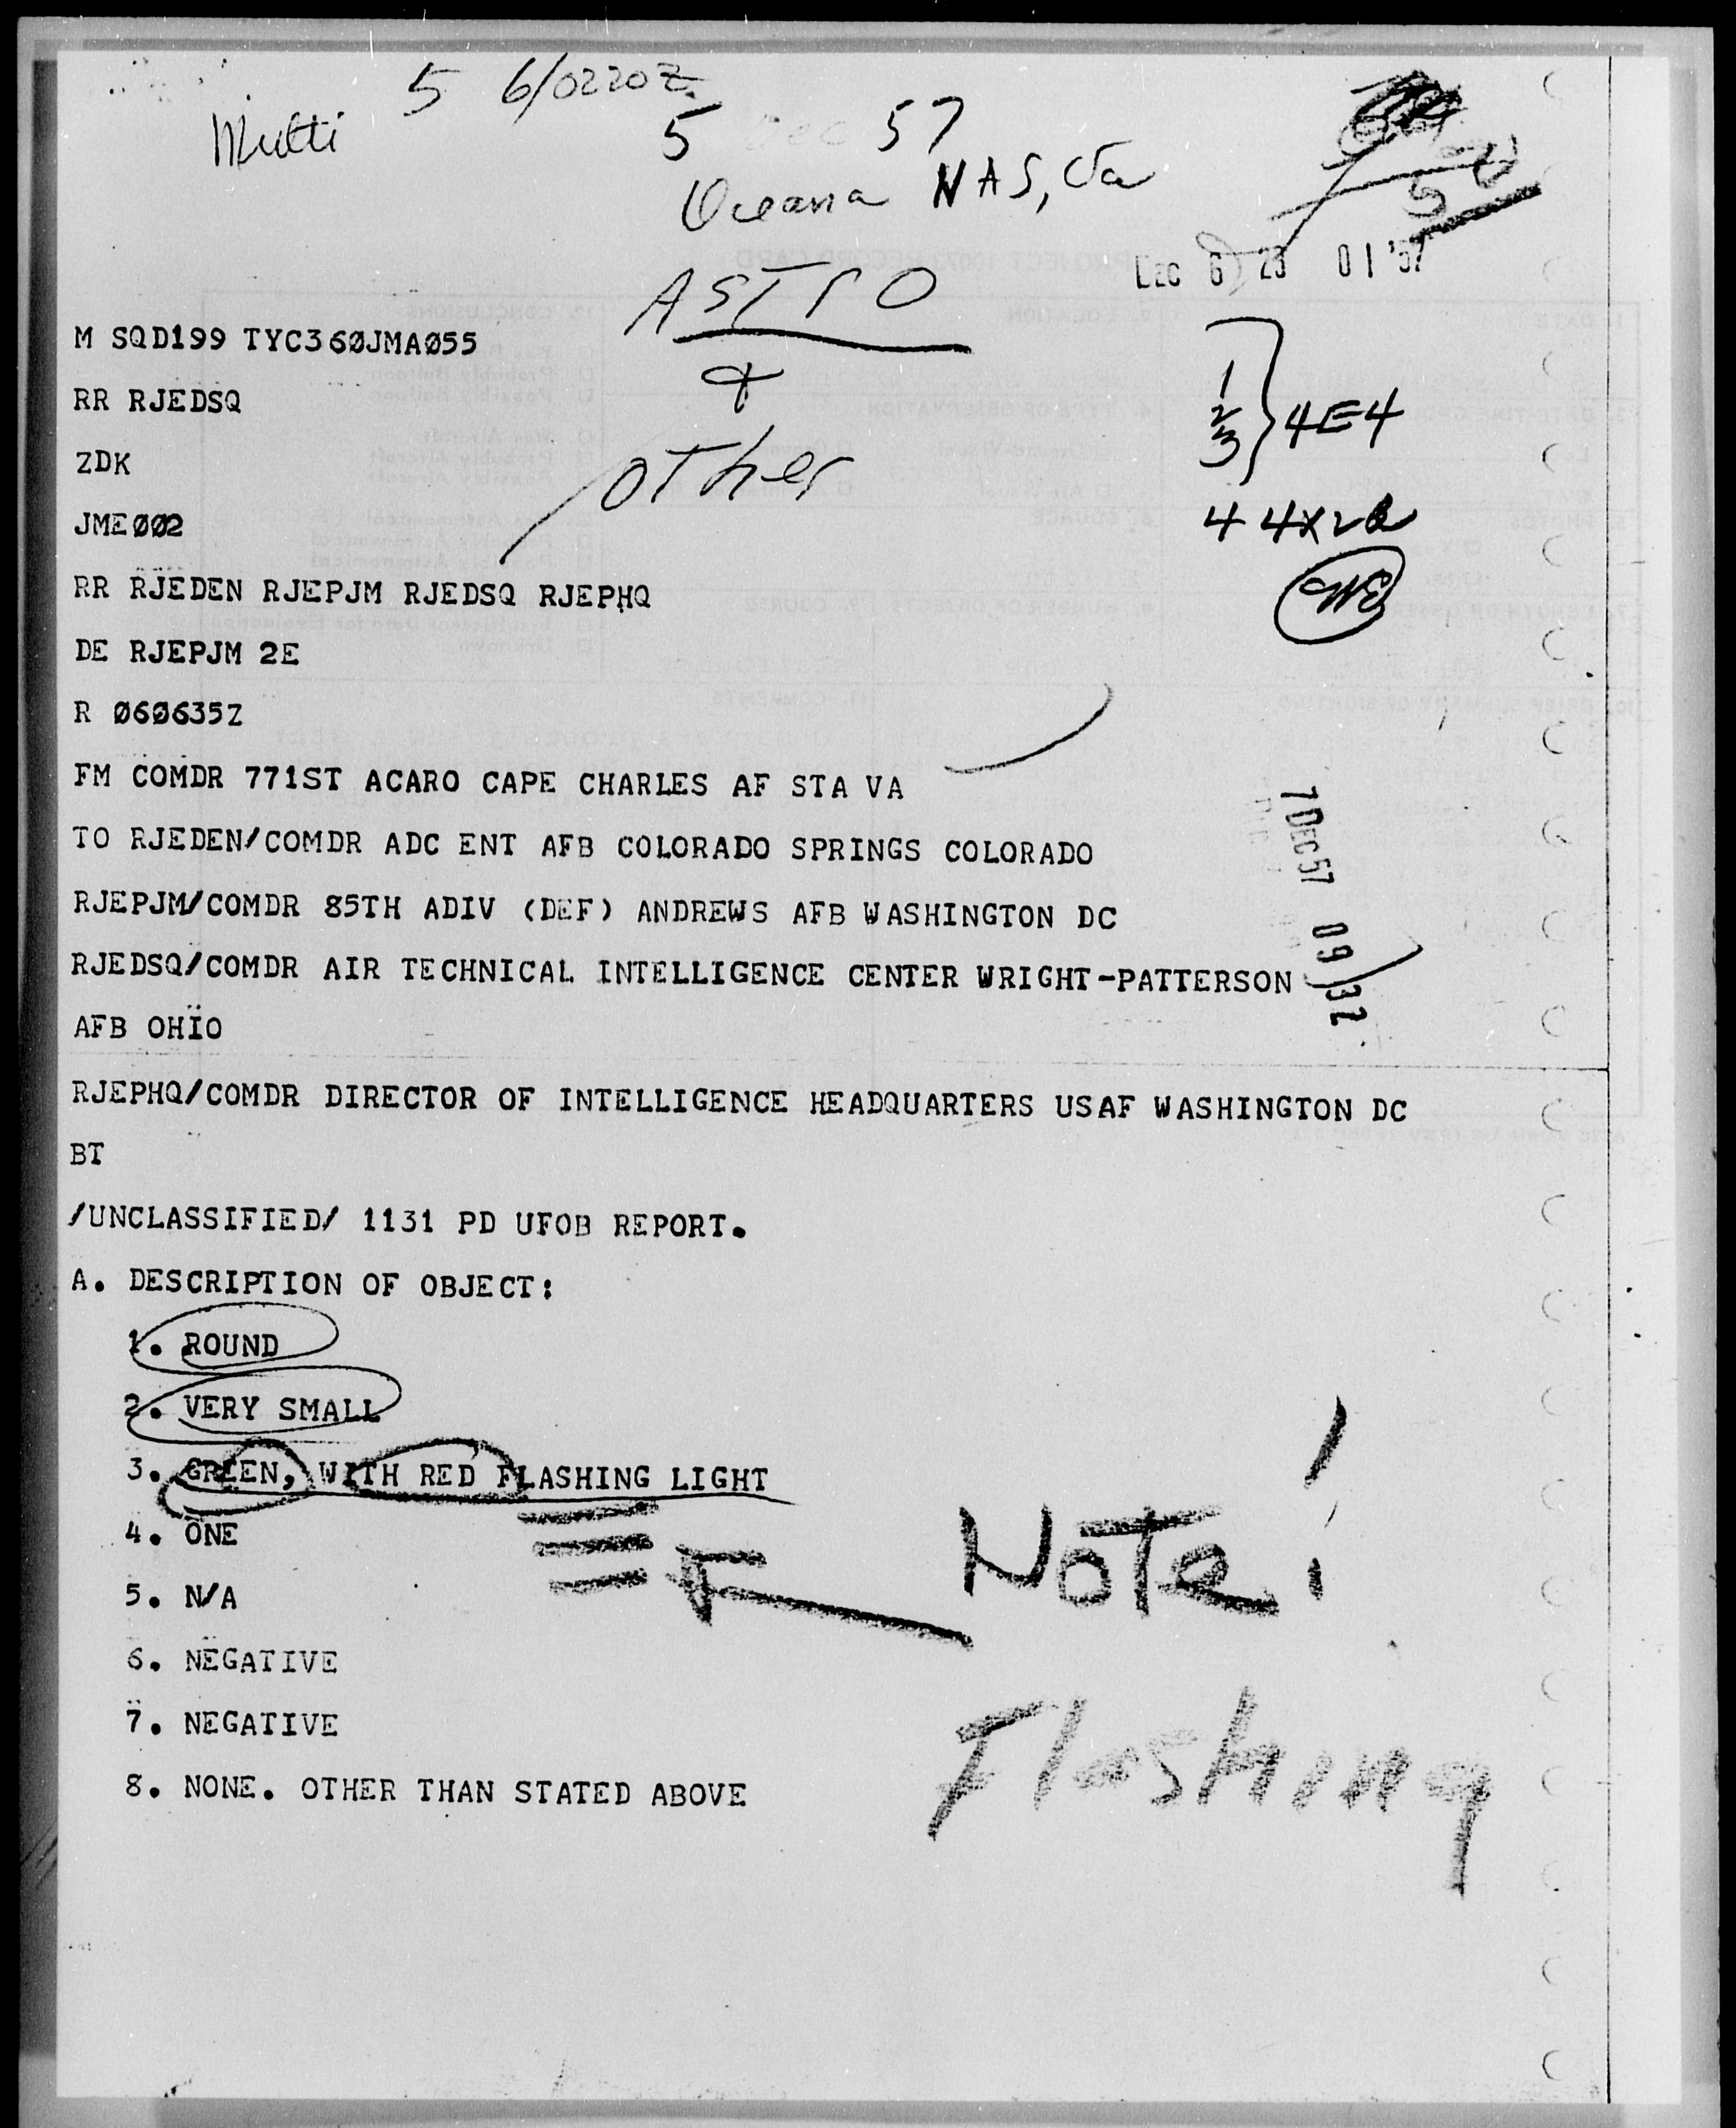 5 6/0220Z
Multi
5 Dec 57
Oceana NAS, Va
DEC 6 23 01 '57
ASTRO
+
other
1
2
3
} 4E4
4 4X2
M SQD199 TYC360JMA055
RR RJEDSQ
ZDK
JME002
RR RJEDEN RJEPJM RJEDSQ RJEPHQ
DE RJEPJM 2E
R 060635Z
FM COMDR 771ST ACARO CAPE CHARLES AF STA VA
TO RJEDEN/COMDR ADC ENT AFB COLORADO SPRINGS COLORADO
RJEPJM/COMDR 85TH ADIV (DEF) ANDREWS AFB WASHINGTON DC
RJEDSQ/COMDR AIR TECHNICAL INTELLIGENCE CENTER WRIGHT-PATTERSON
AFB OHIO
7 DEC 57 09 32
RJEPHQ/COMDR DIRECTOR OF INTELLIGENCE HEADQUARTERS USAF WASHINGTON DC
BT
/UNCLASSIFIED/ 1131 PD UFOB REPORT.
A. DESCRIPTION OF OBJECT:
1. ROUND
2. VERY SMALL
3. GREEN, WITH RED FLASHING LIGHT
4. ONE
Note!
5. N/A
6. NEGATIVE
7. NEGATIVE
Flashing
8. NONE. OTHER THAN STATED ABOVE